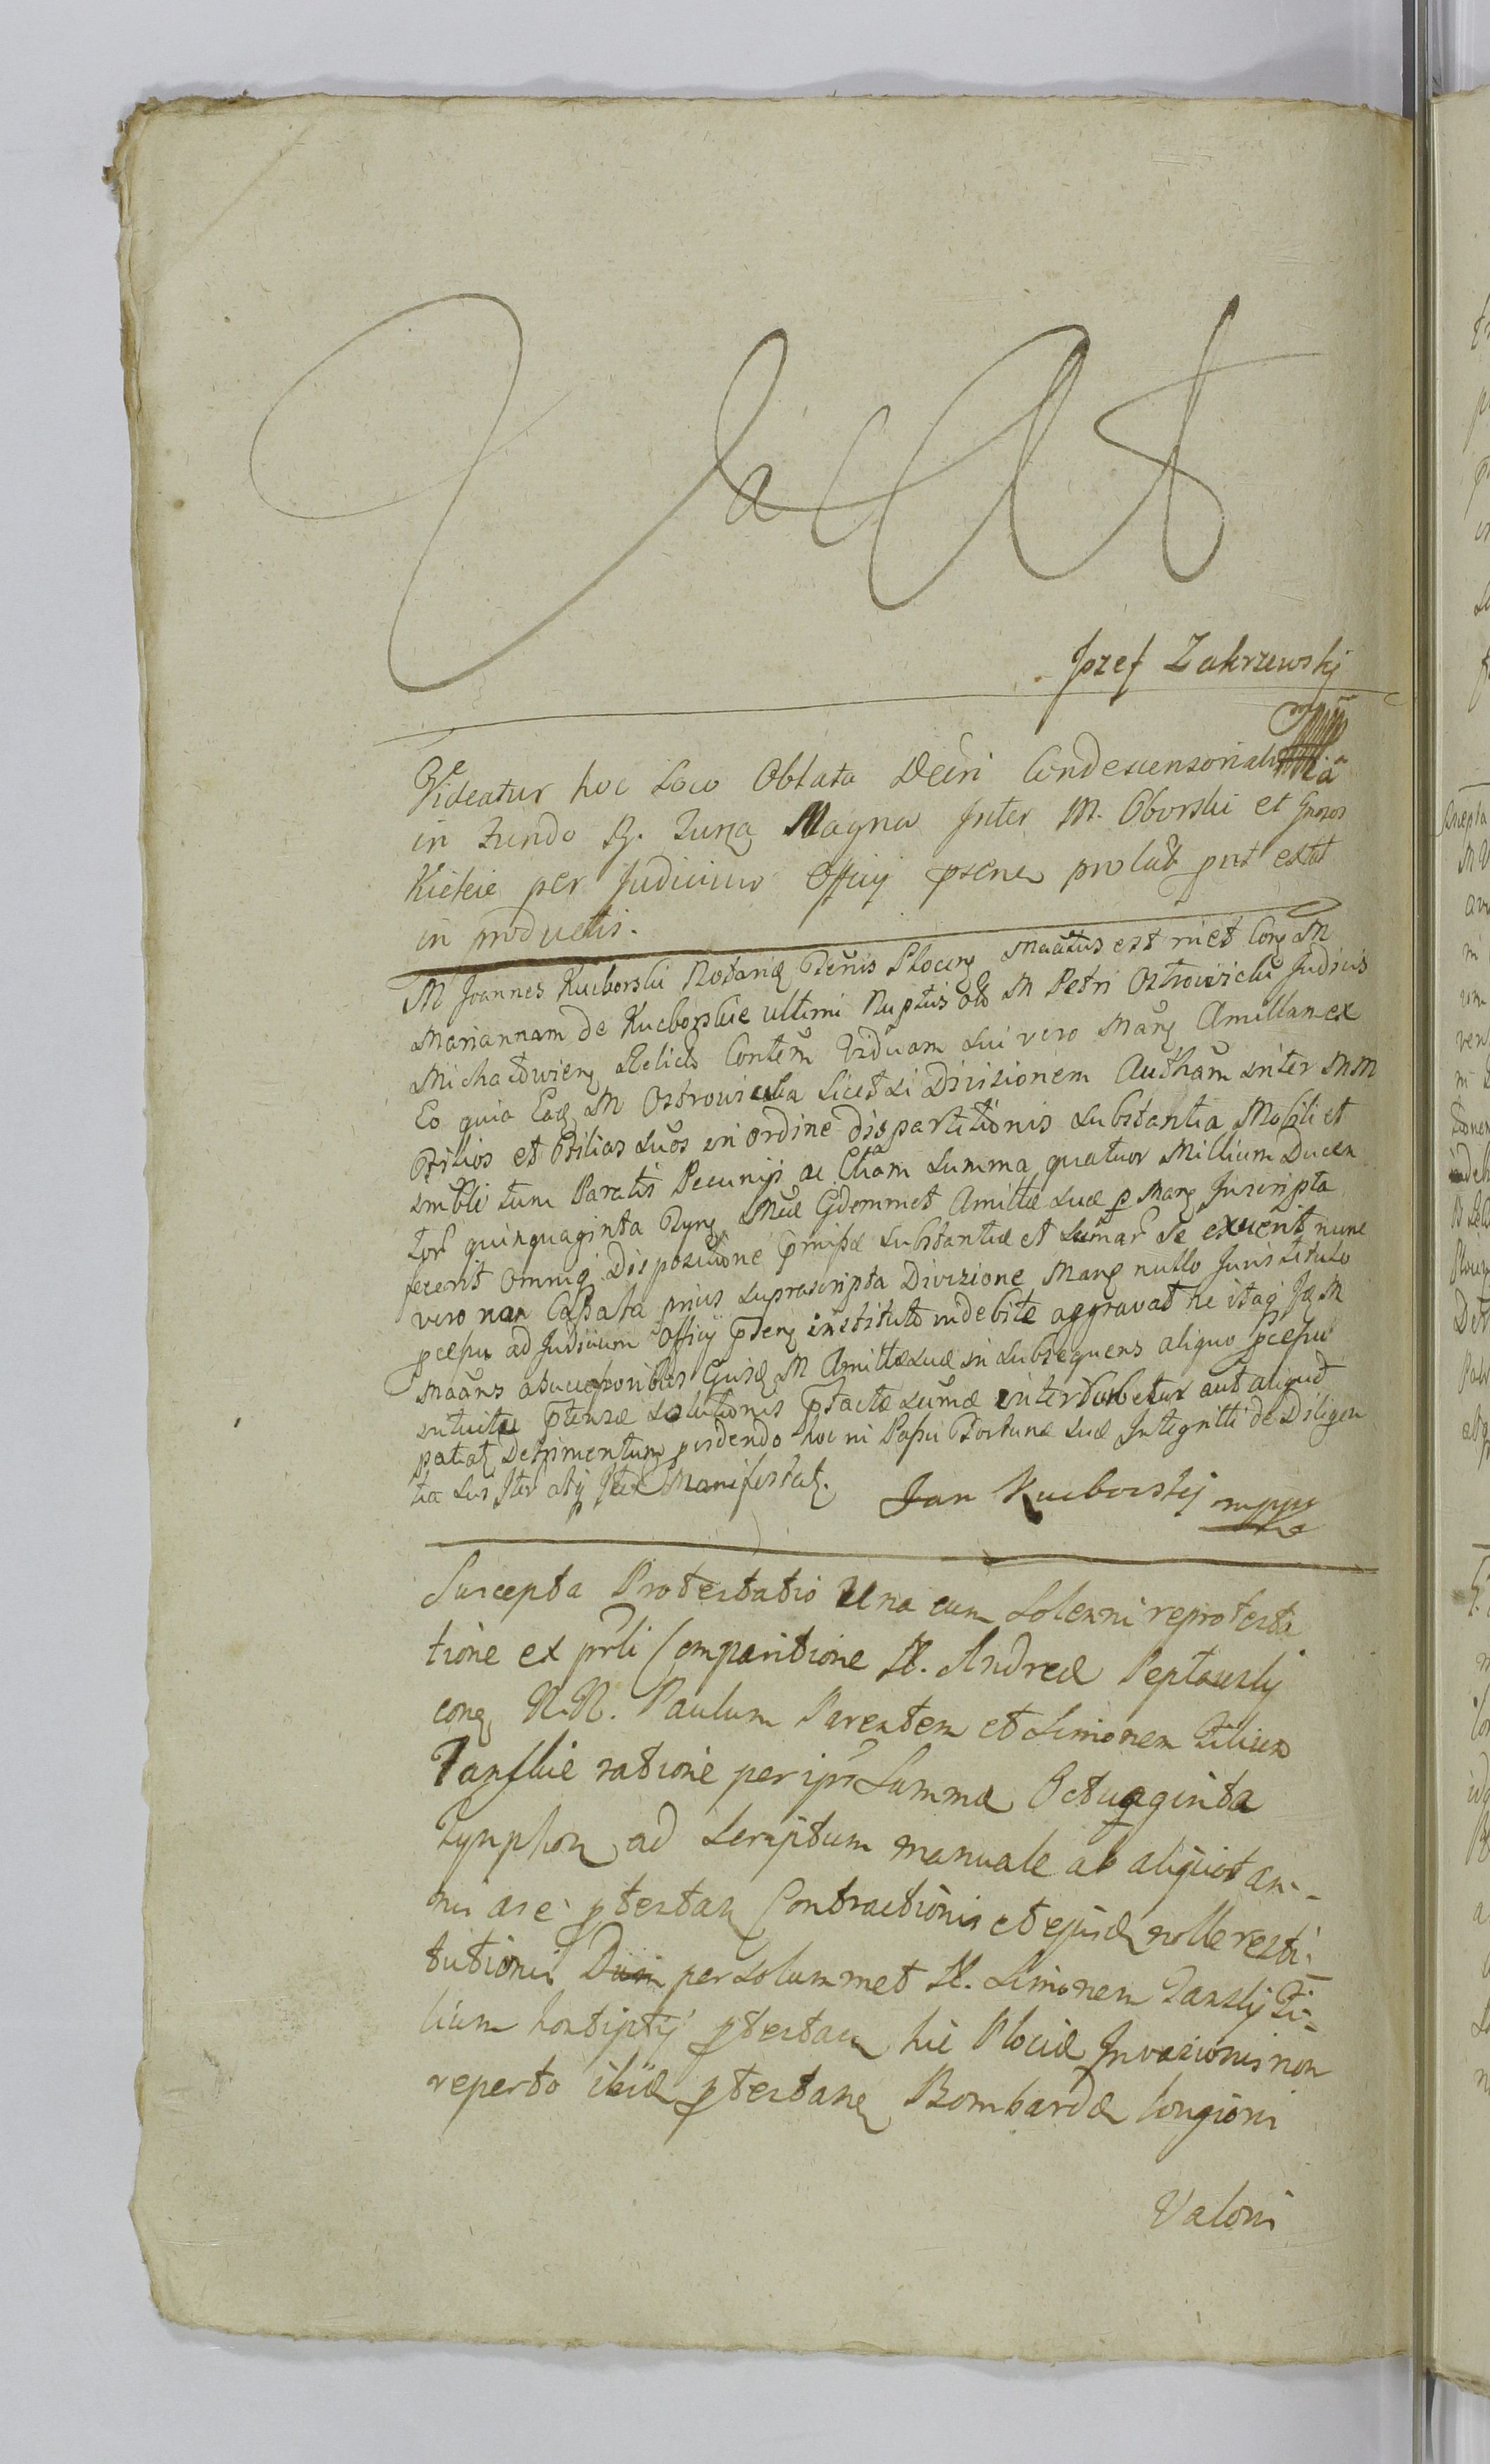 Jozef Zakrzewskj
Videatur hoc Loco Oblata Decri Condescensorialis
in Fundo B. Zurg Magna Inter M. Oborski et Gnosos
Kickie per Judicium Officij psens prolat prt extat
in productis.
M Joannes Kucborski Notariq Ptenis Plocens Maãtus est met Cong M
Mariannam de Kucborskie ultimi Nuptijs olo M Petri Ostrowicki Judicis
Relicto Contem Viduam Lui vero Mang Amillam ex
Eo quia Eadq M Ostrowicka Licet Li Divisionem Autham inter MM
Filios et Filias Luos in ordine dispartitionis Lubstantia Mobili et
imbli tum Paratis Pecunijs ac Etiam Lumma quatuor Millium Ducen
tor quinquaginta Tyng Amittæ Luæ p Mang Inscripta
fecerit omniq Dispositione pmissæ Lubstantiæ et Lumar Se exuerit nunc
vero non Cassata prius Luprascripta Divizione Mang nullo Juris titulo
pcepu ad Judicium Officij Ptens instituto indebite aggravat ne itaq Id M
Maãns Gusdq M Amittæ Luæ in Lubsequens aliquo pcepu
intuitu ptensæ Lolutionis ptactæ Lumæ interturbetur aut aliquod
patiat Detrimentum pcidendo hoc in Passu Fortunæ Luæ Integritti de Diligen
tia Lui Iter atq Iter Manifestat. Jan Kucborskj mppa
Suscepta Protestatio Una cum Lolenni reprotesta
tione ex prli Comparitione N. Andreæ Peptowskj
cong N.N. Paulum Parentem et Limonem Filium
Tanskie ratione per ips Summa Octuaginta
Tynphon ad Scriptum manuale ab aliquot an-
nis are ptestan Contractionis et ejusd nolle resti-
tutionis Dum per Lolummet N. Limonem Tanskj Fi-
lium hostiptij ptestan hic Plociæ Invasionis non
reperto ibid ptestane Bombardæ longioris
Valoris